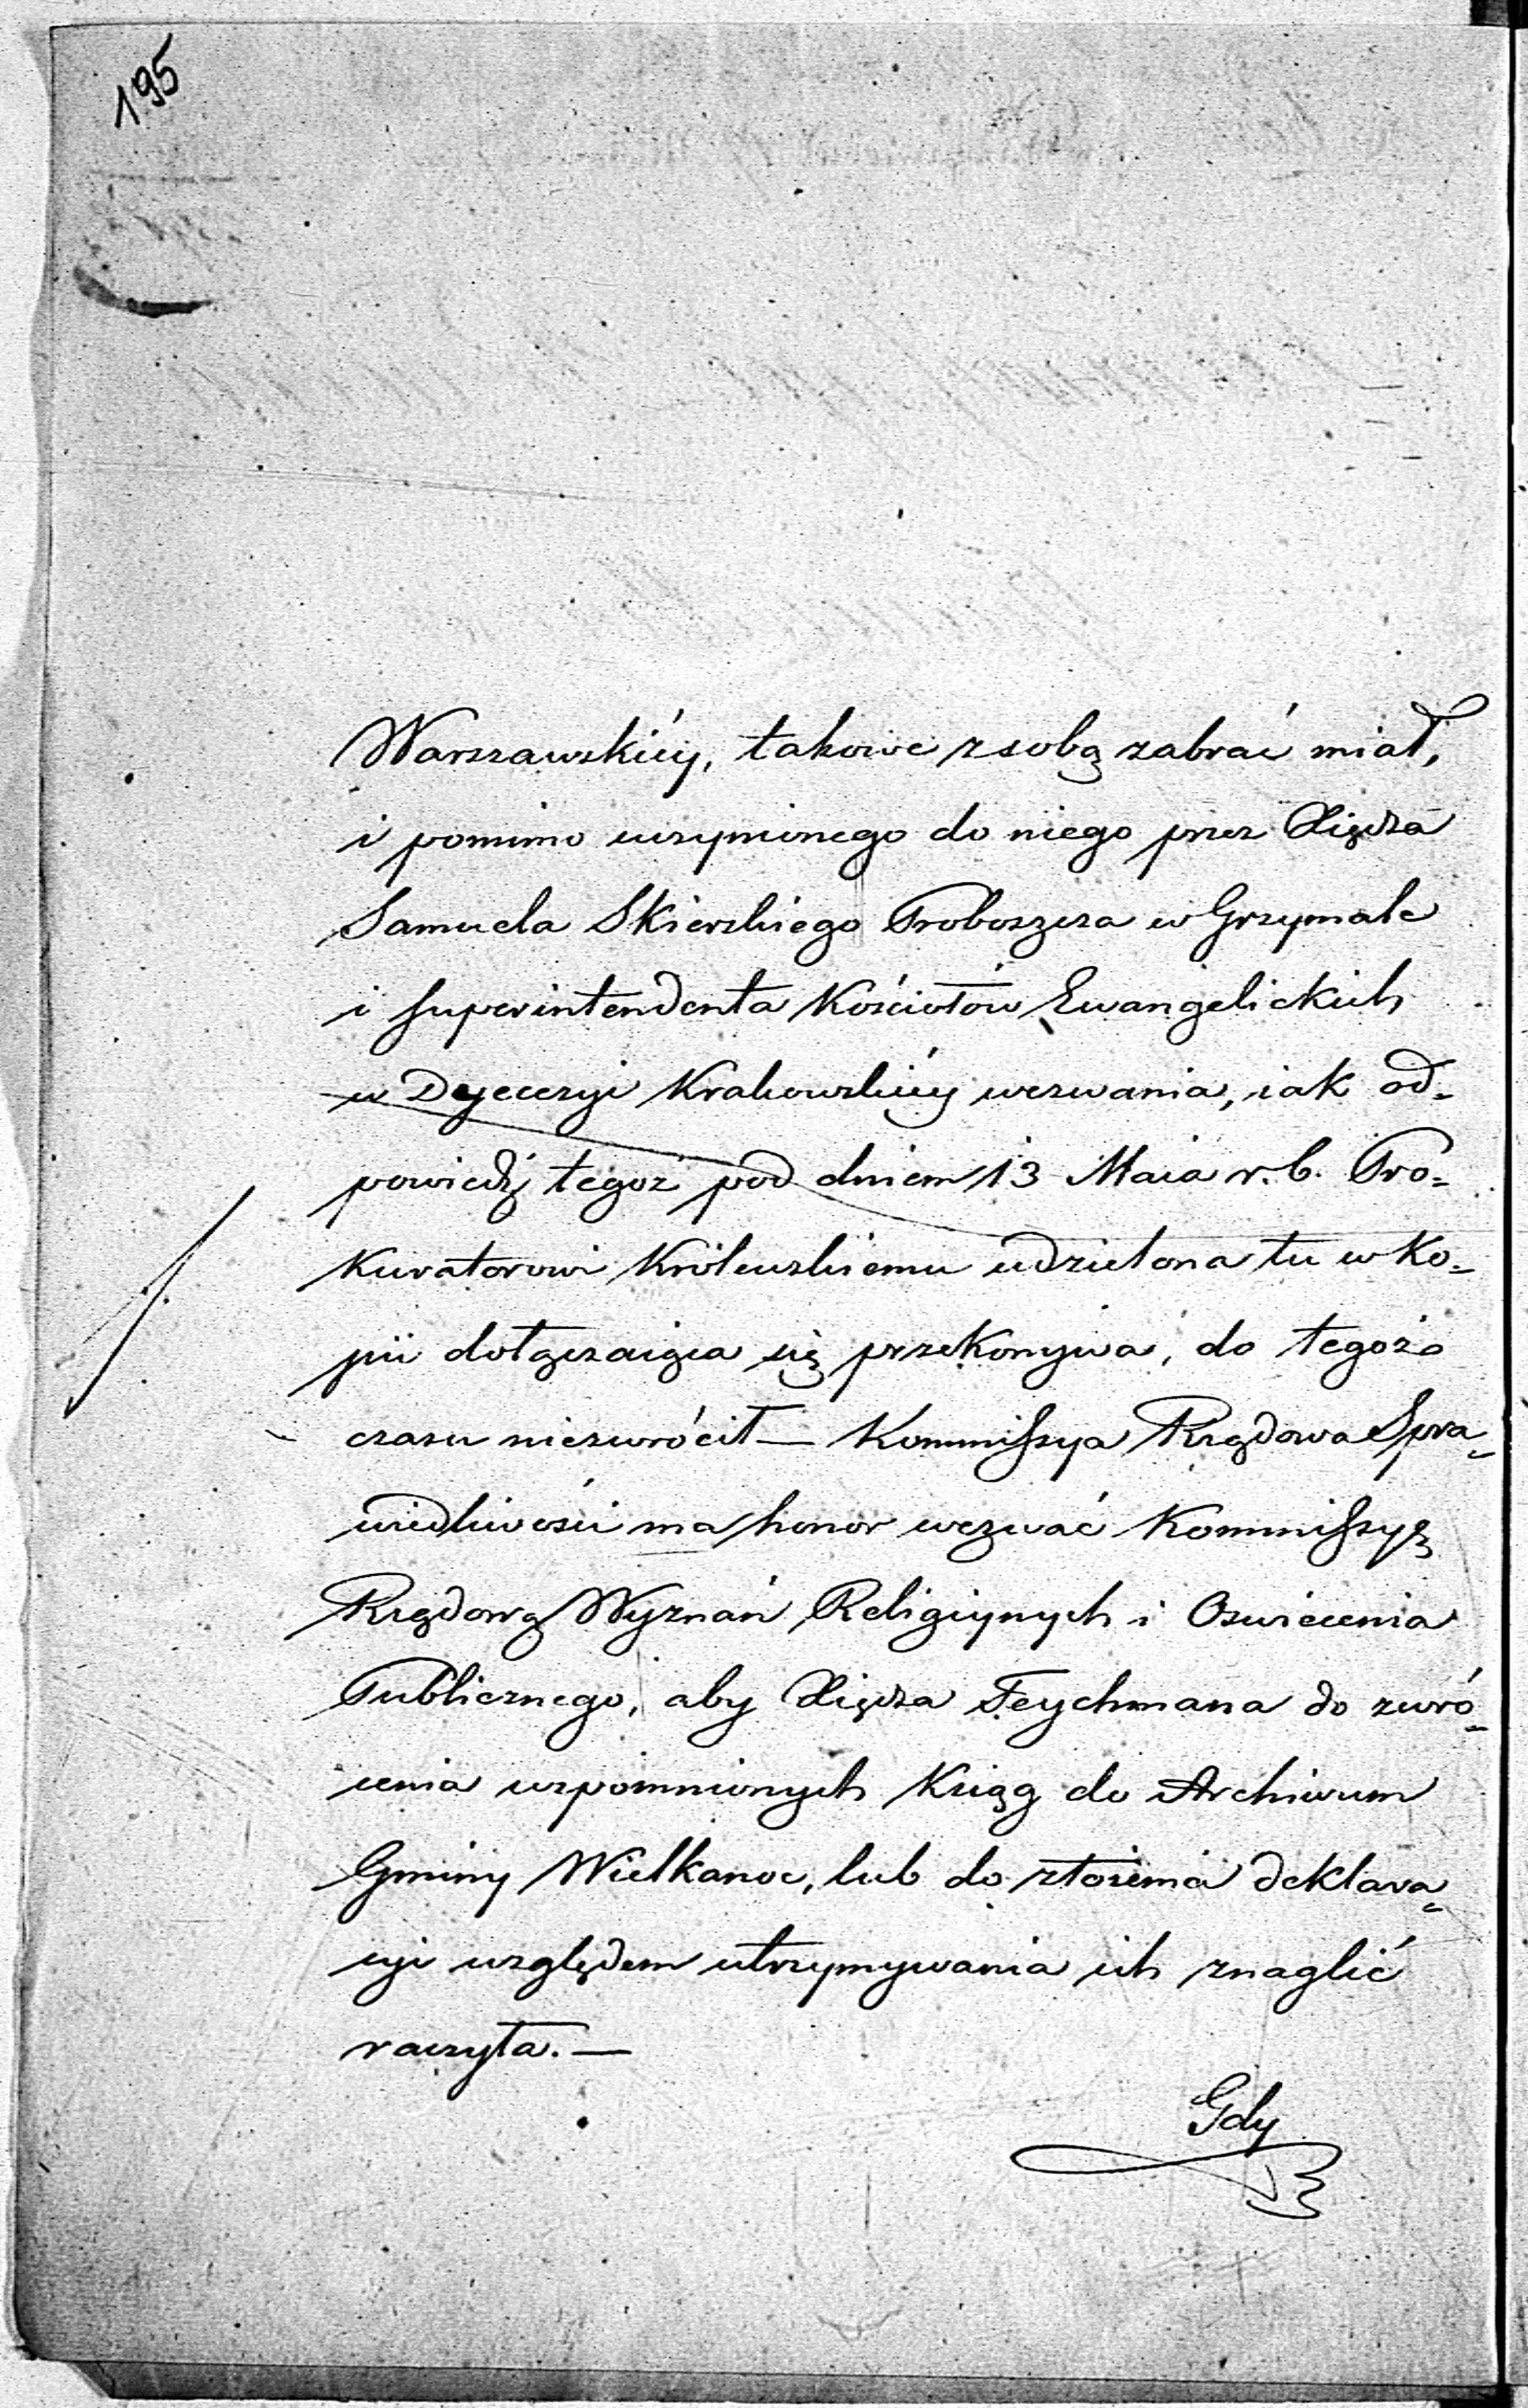 195
Warszawskiéy, takowe z sobą zabrać miał,
i pomimo uczynionego do niego przez Xiędza
Samuela Skierskiego Proboszcza w Grzymale
i Superintendenta Kościołów Ewangelickich
w Dyecezyi Krakowskiéy wezwania, iak od-
powiedź tegoż pod dniem 13 Maia r. b. Pro-
kuratorowi Królewskiemu udzielona tu w ko-
pii dołączaiąca się przekonywa, do tegoż
czasu niezwrócił — Kommissya Rządowa Spra-
wiedliwości ma honor wezwać Kommissyę
Rządową Wyznań Religiynych i Oswiecenia
Publicznego, aby Xiędza Teychmana do zwró-
cenia wspomnionych Ksiąg do Archiwum
Gminy Wielkanoc, lub do złożenia deklara-
cyi względem utrzymywania ich znaglić
raczyła. —
Gdy